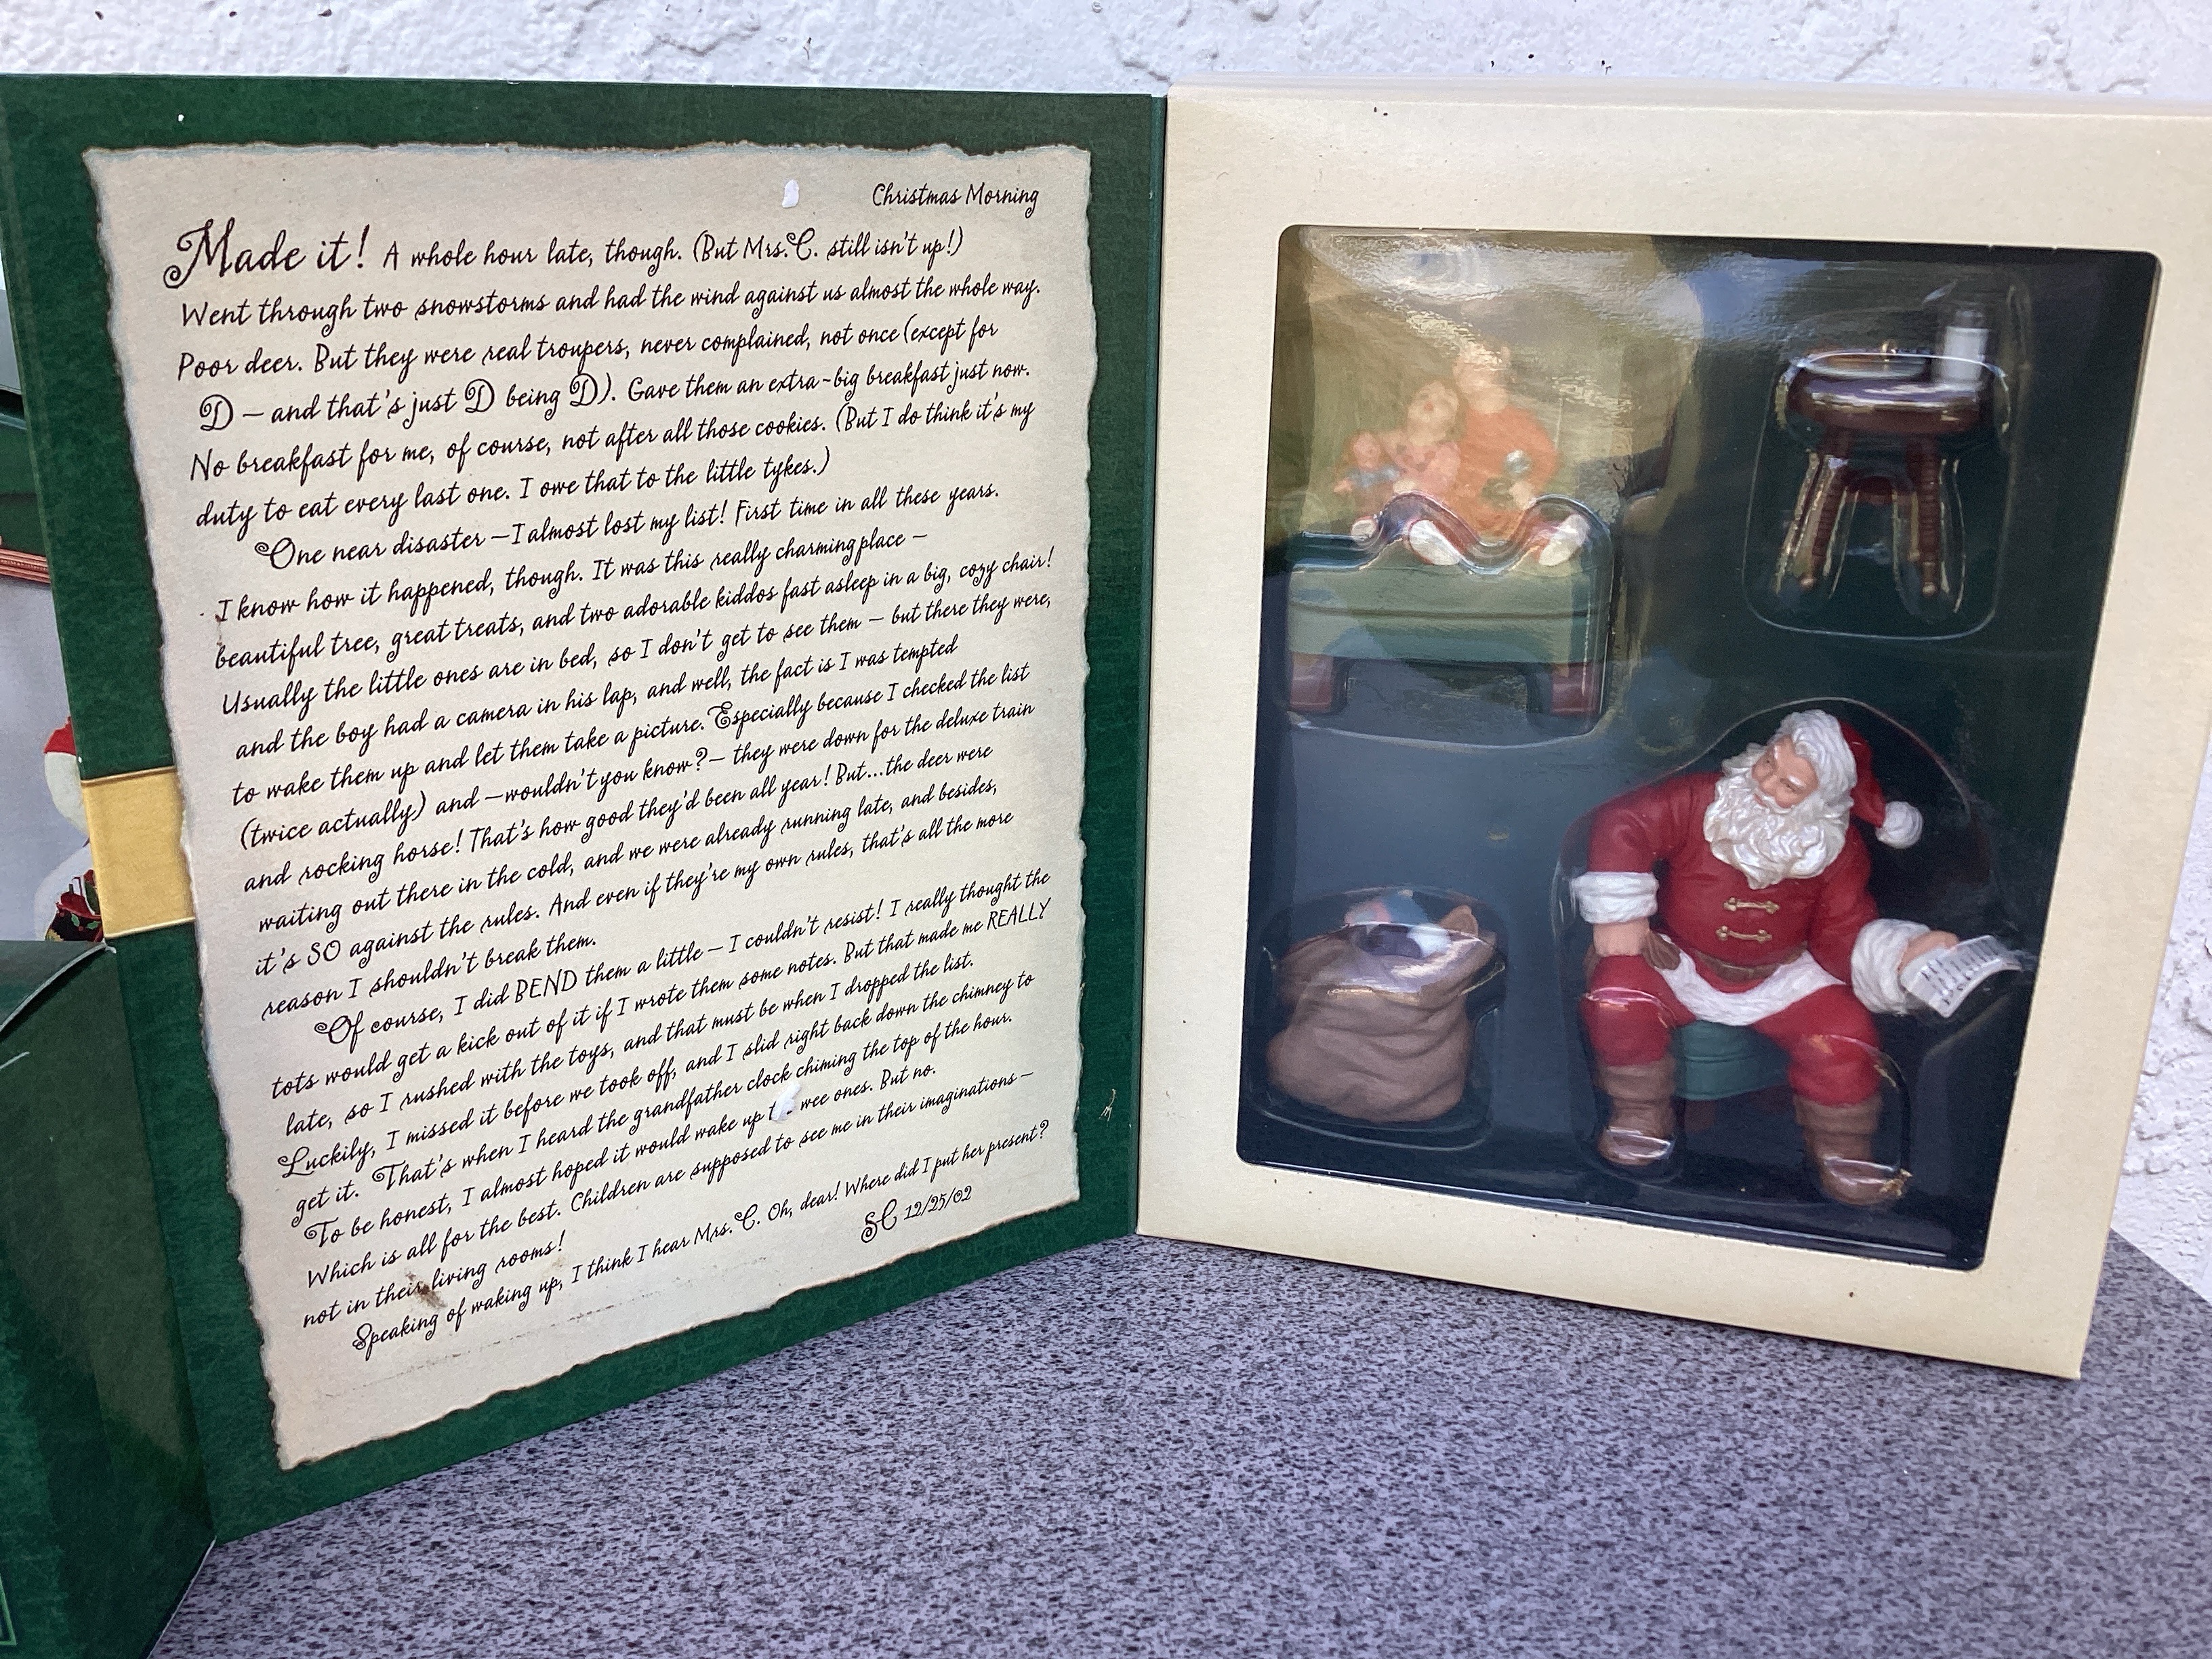 Christmas Morning
Made it! A whole hour late, though. (But Mrs. C. still isn't up!)
Went through two snowstorms and had the wind against us almost the whole way.
Poor deer. But they were real troupers, never complained, not once (except for
D – and that's just D being D). Gave them an extra-big breakfast just now.
No breakfast for me, of course, not after all those cookies. (But I do think it's my
duty to eat every last one. I owe that to the little tykes.)
One near disaster – I almost lost my list! First time in all these years.
I know how it happened, though. It was this really charming place –
beautiful tree, great treats, and two adorable kiddos fast asleep in a big, cozy chair!
Usually the little ones are in bed, so I don't get to see them – but there they were,
and the boy had a camera in his lap, and well, the fact is I was tempted
to wake them up and let them take a picture. Especially because I checked the list
(twice actually) and – wouldn't you know? – they were down for the deluxe train
and rocking horse! That's how good they'd been all year! But...the deer were
waiting out there in the cold, and we were already running late, and besides,
it's SO against the rules. And even if they're my own rules, that's all the more
reason I shouldn't break them.
Of course, I did BEND them a little – I couldn't resist! I really thought the
tots would get a kick out of it if I wrote them some notes. But that made me REALLY
late, so I rushed with the toys, and that must be when I dropped the list.
Luckily, I missed it before we took off, and I slid right back down the chimney to
get it. That's when I heard the grandfather clock chiming the top of the hour.
To be honest, I almost hoped it would wake up wee ones. But no.
Which is all for the best. Children are supposed to see me in their imaginations –
not in their living rooms!
Speaking of waking up, I think I hear Mrs. C. Oh, dear! Where did I put her present?
SC 12/25/02